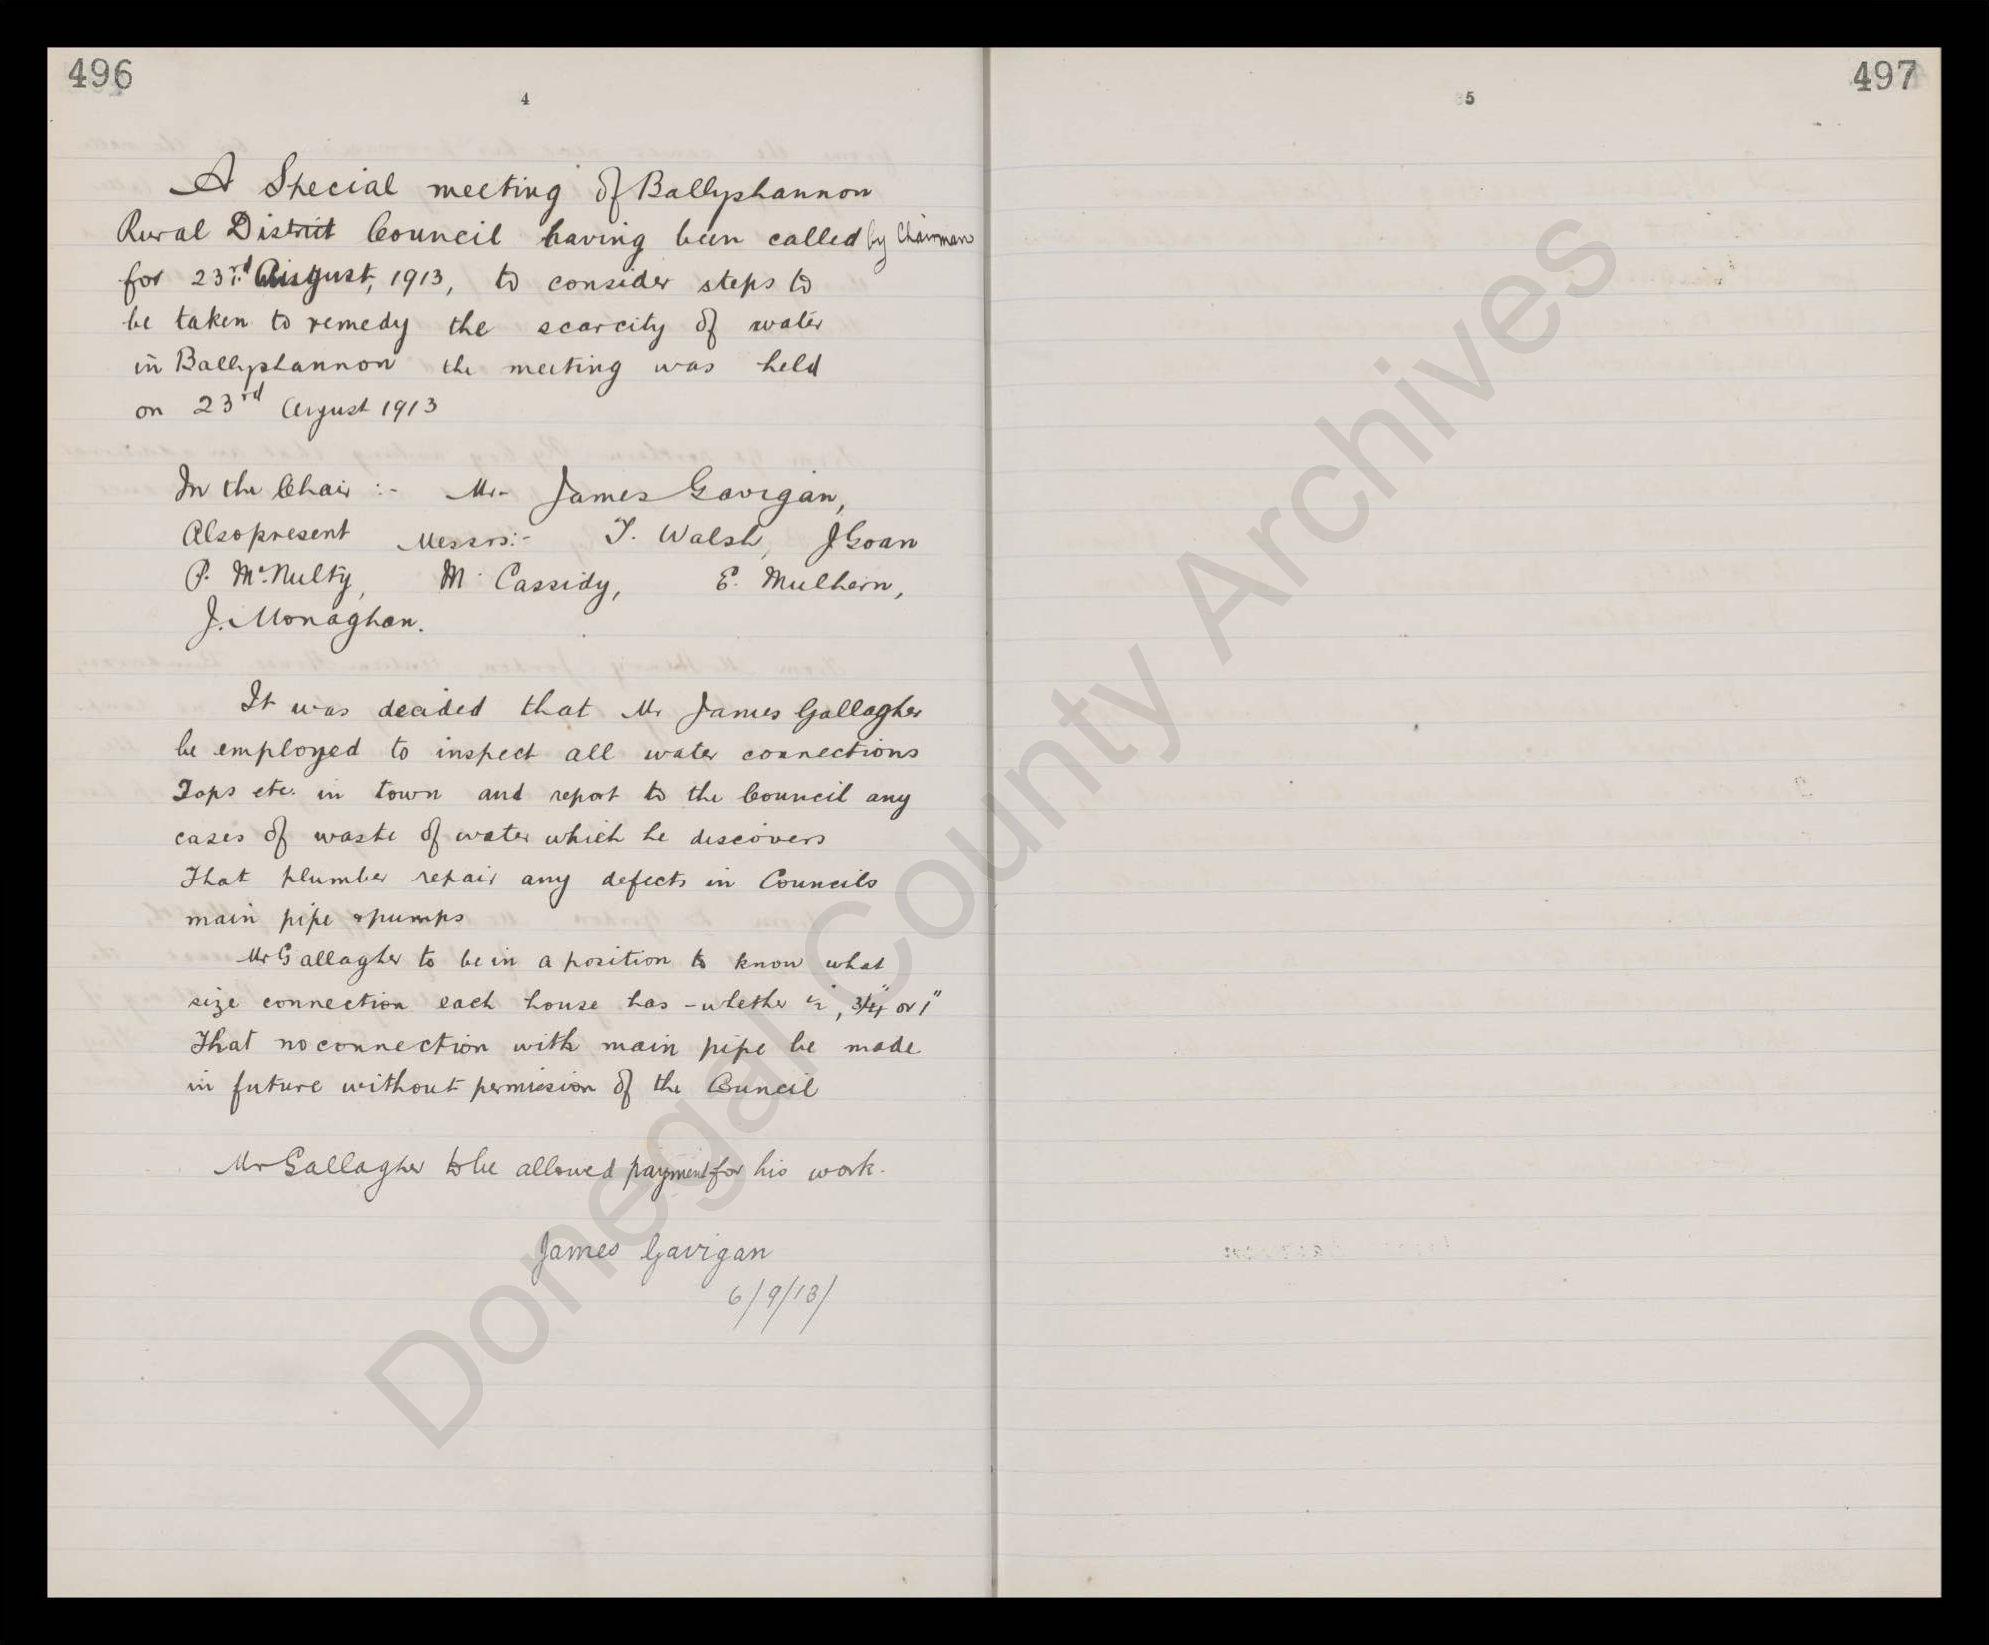 496
4
A Special meeting of Ballyshannon
Rural District Council having been called by Chairman
for 23rd August, 1913, to consider steps to
be taken to remedy the scarcity of water
in Ballyshannon the meeting was held
on 23rd August 1913
In the Chair :- Mr James Gavigan,
Also present Messrs:- T. Walsh, J Goan
P. McNulty, M. Cassidy, E. Mulhern,
J. Monaghan.
It was decided that Mr James Gallagher
be employed to inspect all water connections
Taps etc. in town and report to the Council any
cases of waste of water which he discovers
That plumber repair any defects in Councils
main pipe & pumps
Mr Gallagher to be in a position to know what
size connection each house has - whether ½", 3/4" or 1"
That no connection with main pipe be made
in future without permission of the Council
Mr Gallagher to be allowed payment for his work.
James Gavigan
6/9/13/
497
5
Donegal County Archives